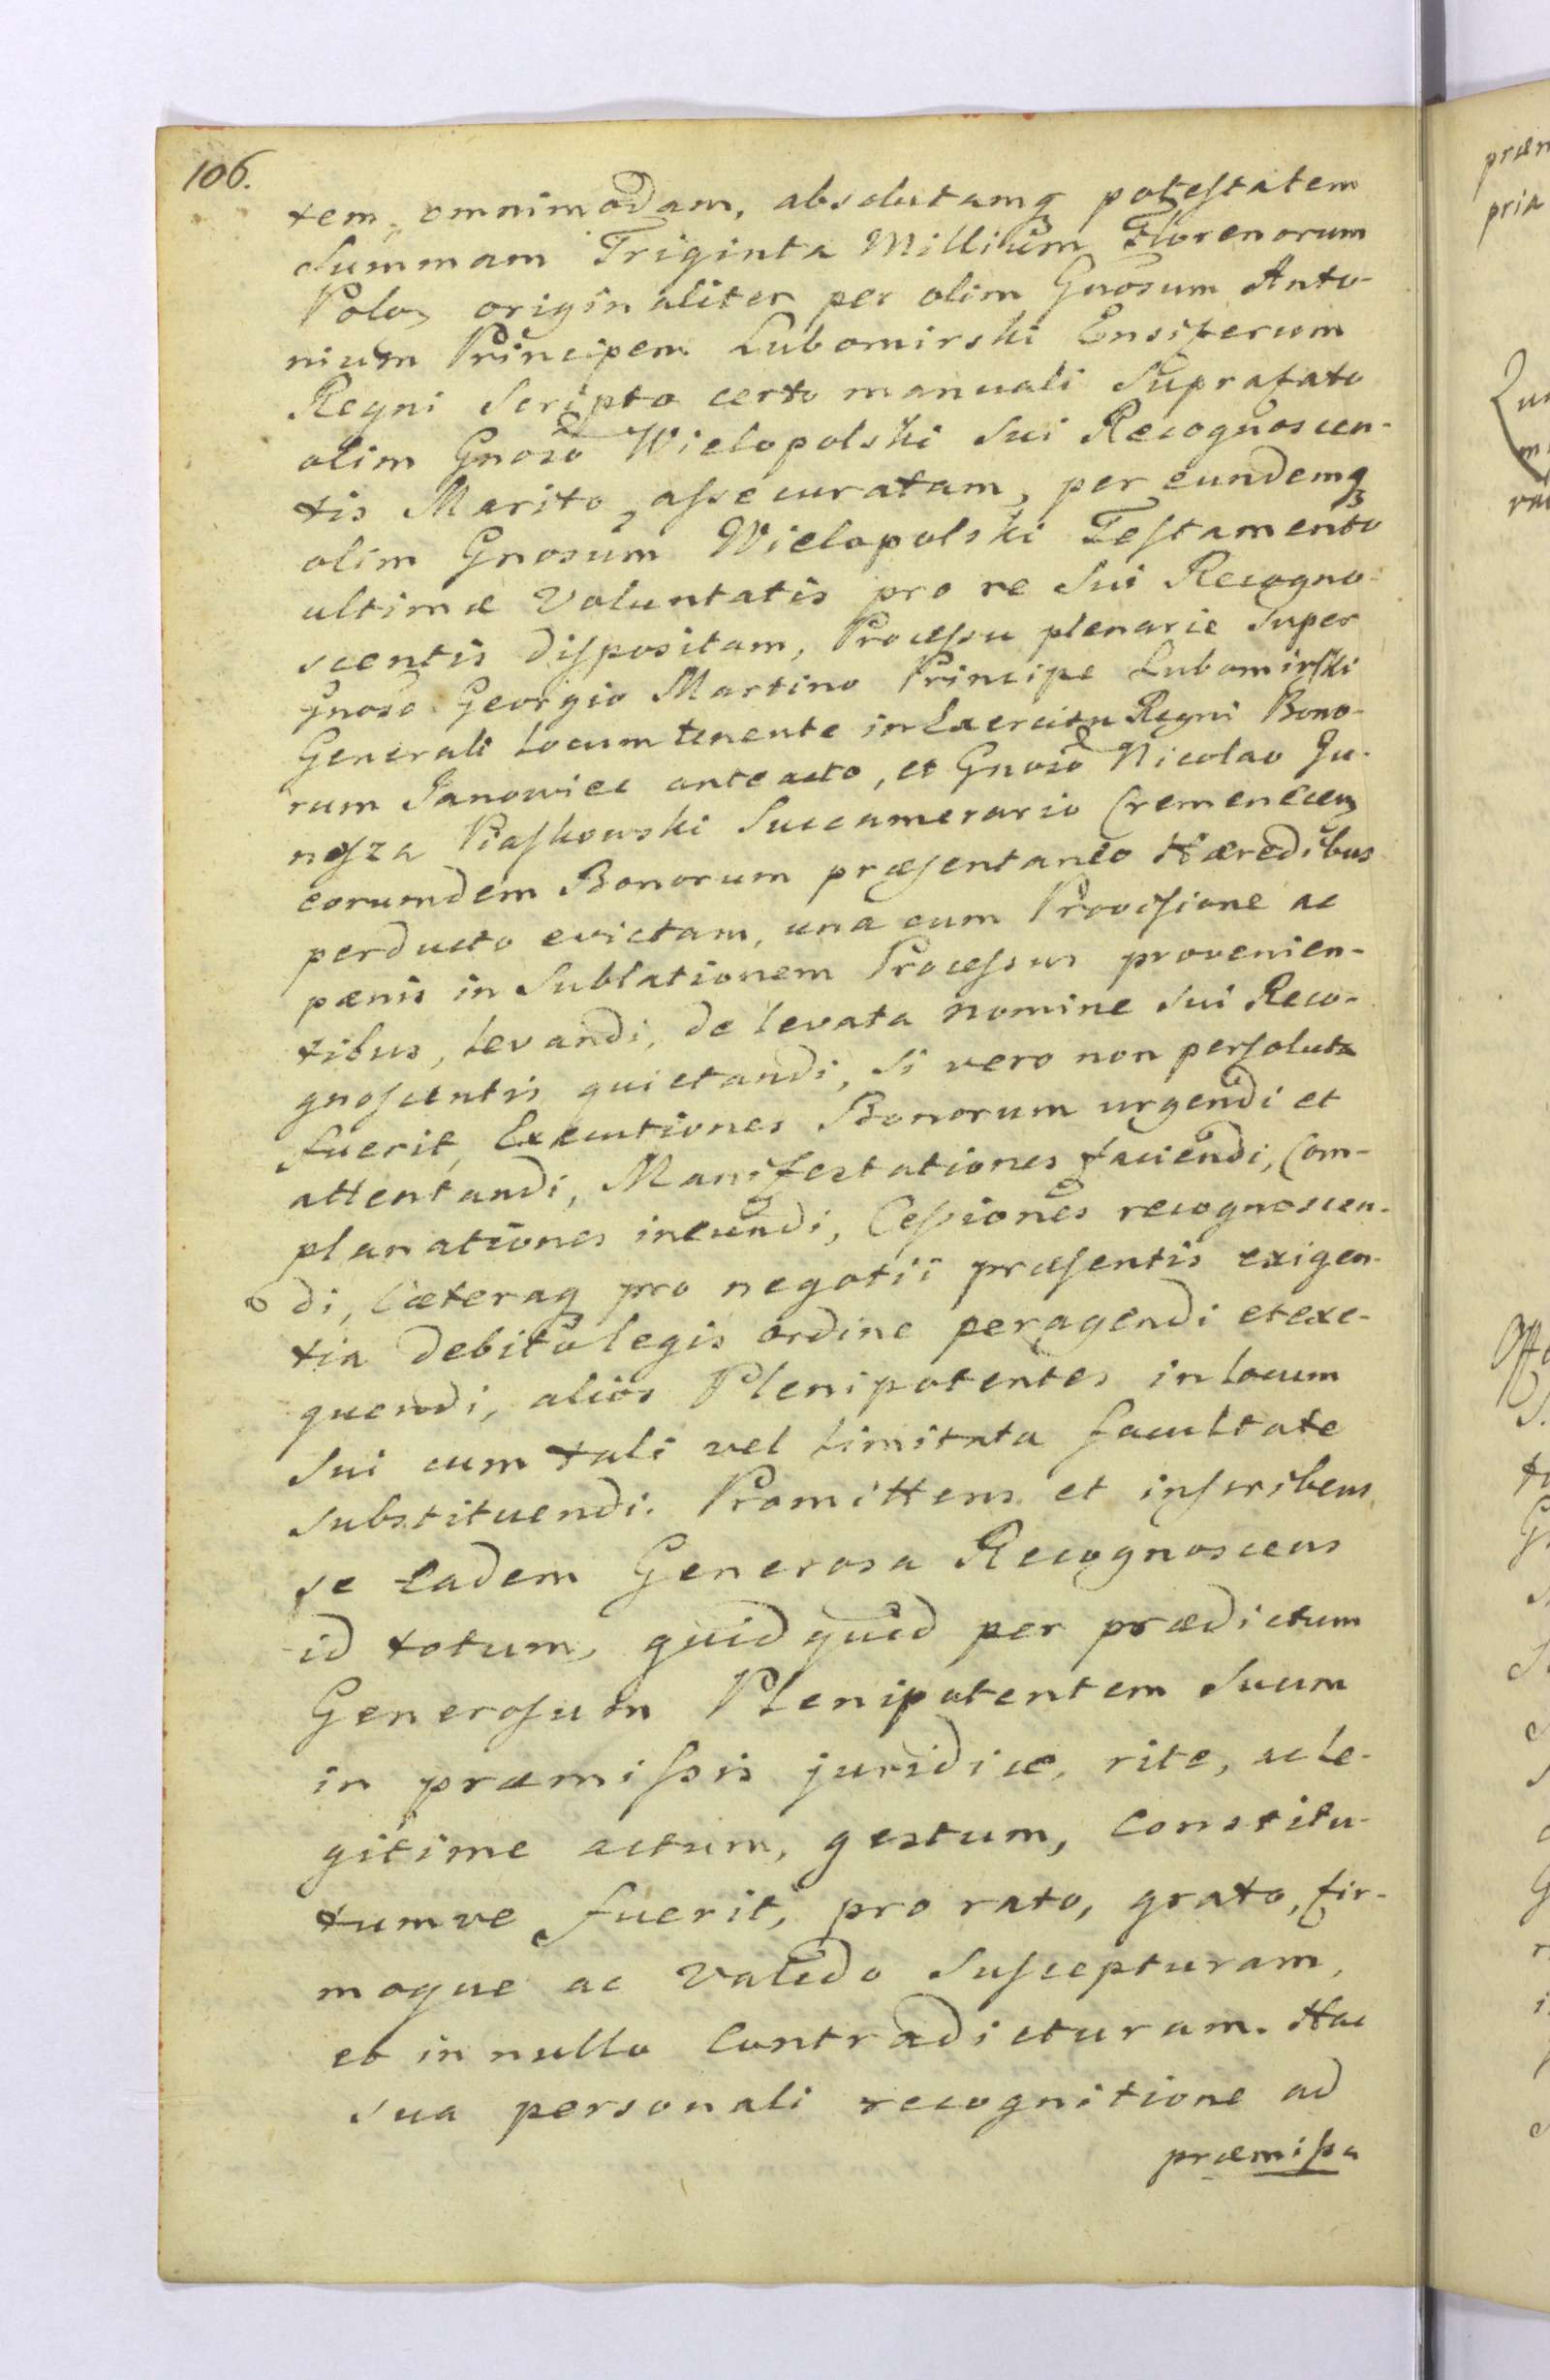 106.
tem, omnimodam, absolutamq potestatem
Summam Triginta Millium Florenorum
Polo, originaliter per olim Gnosum Anto-
nium Principem Lubomirski Ensiferum
Regni Scripto certo manuali Suprafato
olim Gnoso Wielopolski Sui Recognoscen-
tis Marito, assecuratam, per eundemq
olim Gnosum Wielopolski Testamento
ultimæ Voluntatis pro re Sui Recogno-
scentis dispositam, Processu plenarie Super
Gnoso Georgio Martino Principe Lubomirski
Generali Locum tenente in Exercitu Regni Bono-
rum Janowiec anteacto, et Gnoso Nicolao Ju-
nosza Piaskowski Succamerario Cremenecen
eorumdem Bonorum præsentaneo Hæredibus
perducto evictam, una cum Provisione ac
pænis in Sublationem Processus provenien-
tibus, levandi, de levata nomine Sui Reco-
gnoscentis quietandi, Si vero non persoluta
fuerit, Executiones Bonorum urgendi et
attentandi, Manifestationes faciendi, Com-
planationes ineundi, Cessiones recognoscen-
di, Cæteraq pro negotii præsentis exigen-
tia debito legis ordine peragendi et exe-
quendi, alios Plenipotentes in locum
Sui cum tali vel limitata facultate
substituendi. Promittens et inscribens
se Eadem Generosa Recognoscens
id totum, quidquid per prædictum
Generosum Plenipotentem Suum
in præmissis juridice, rite, ac le-
gitime actum, gestum, Constitu-
tumve fuerit, pro rato, grato, fir-
moque ac valido Suscepturam,
et in nullo Contradicturam. Hac
sua personali recognitione ad
præmissa
præn
pria